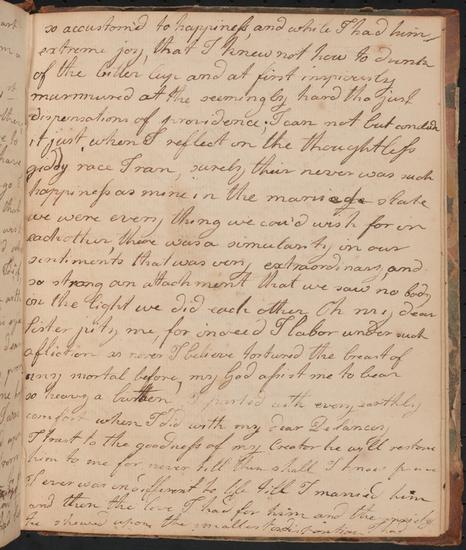 so accustom'd to happiness and while I had him
extreme joy, that I knew not how to drink
of the bitter Cup and at first impiously
murmured at the seemingly hard tho just
dispensations of providence, I can not but conclude
it just when I reflect on the thoughtless
giddy race I ran, surely their never was such
happiness as mine in the mariage state
we were every thing we cou'd wish for in
each other, there was a simularity in our
sentiments that was very extraordinary, and
so strong an attachment that we saw no body
in the light we did each other Oh my dear
Sister pity me, for indeed I labor under such
afliction as never I believe tortured the breast of
any mortal before, my God asist me to bear
so heavy a burthen I parted with every earthly
comfort when I did with my dear Delancey
I trust to the goodness of my Creator he will restore
him to me for never till then shall I know peace
I ever was indifferent to life till I married him
and then the love I had for him and the
he shewed upon the smallest had